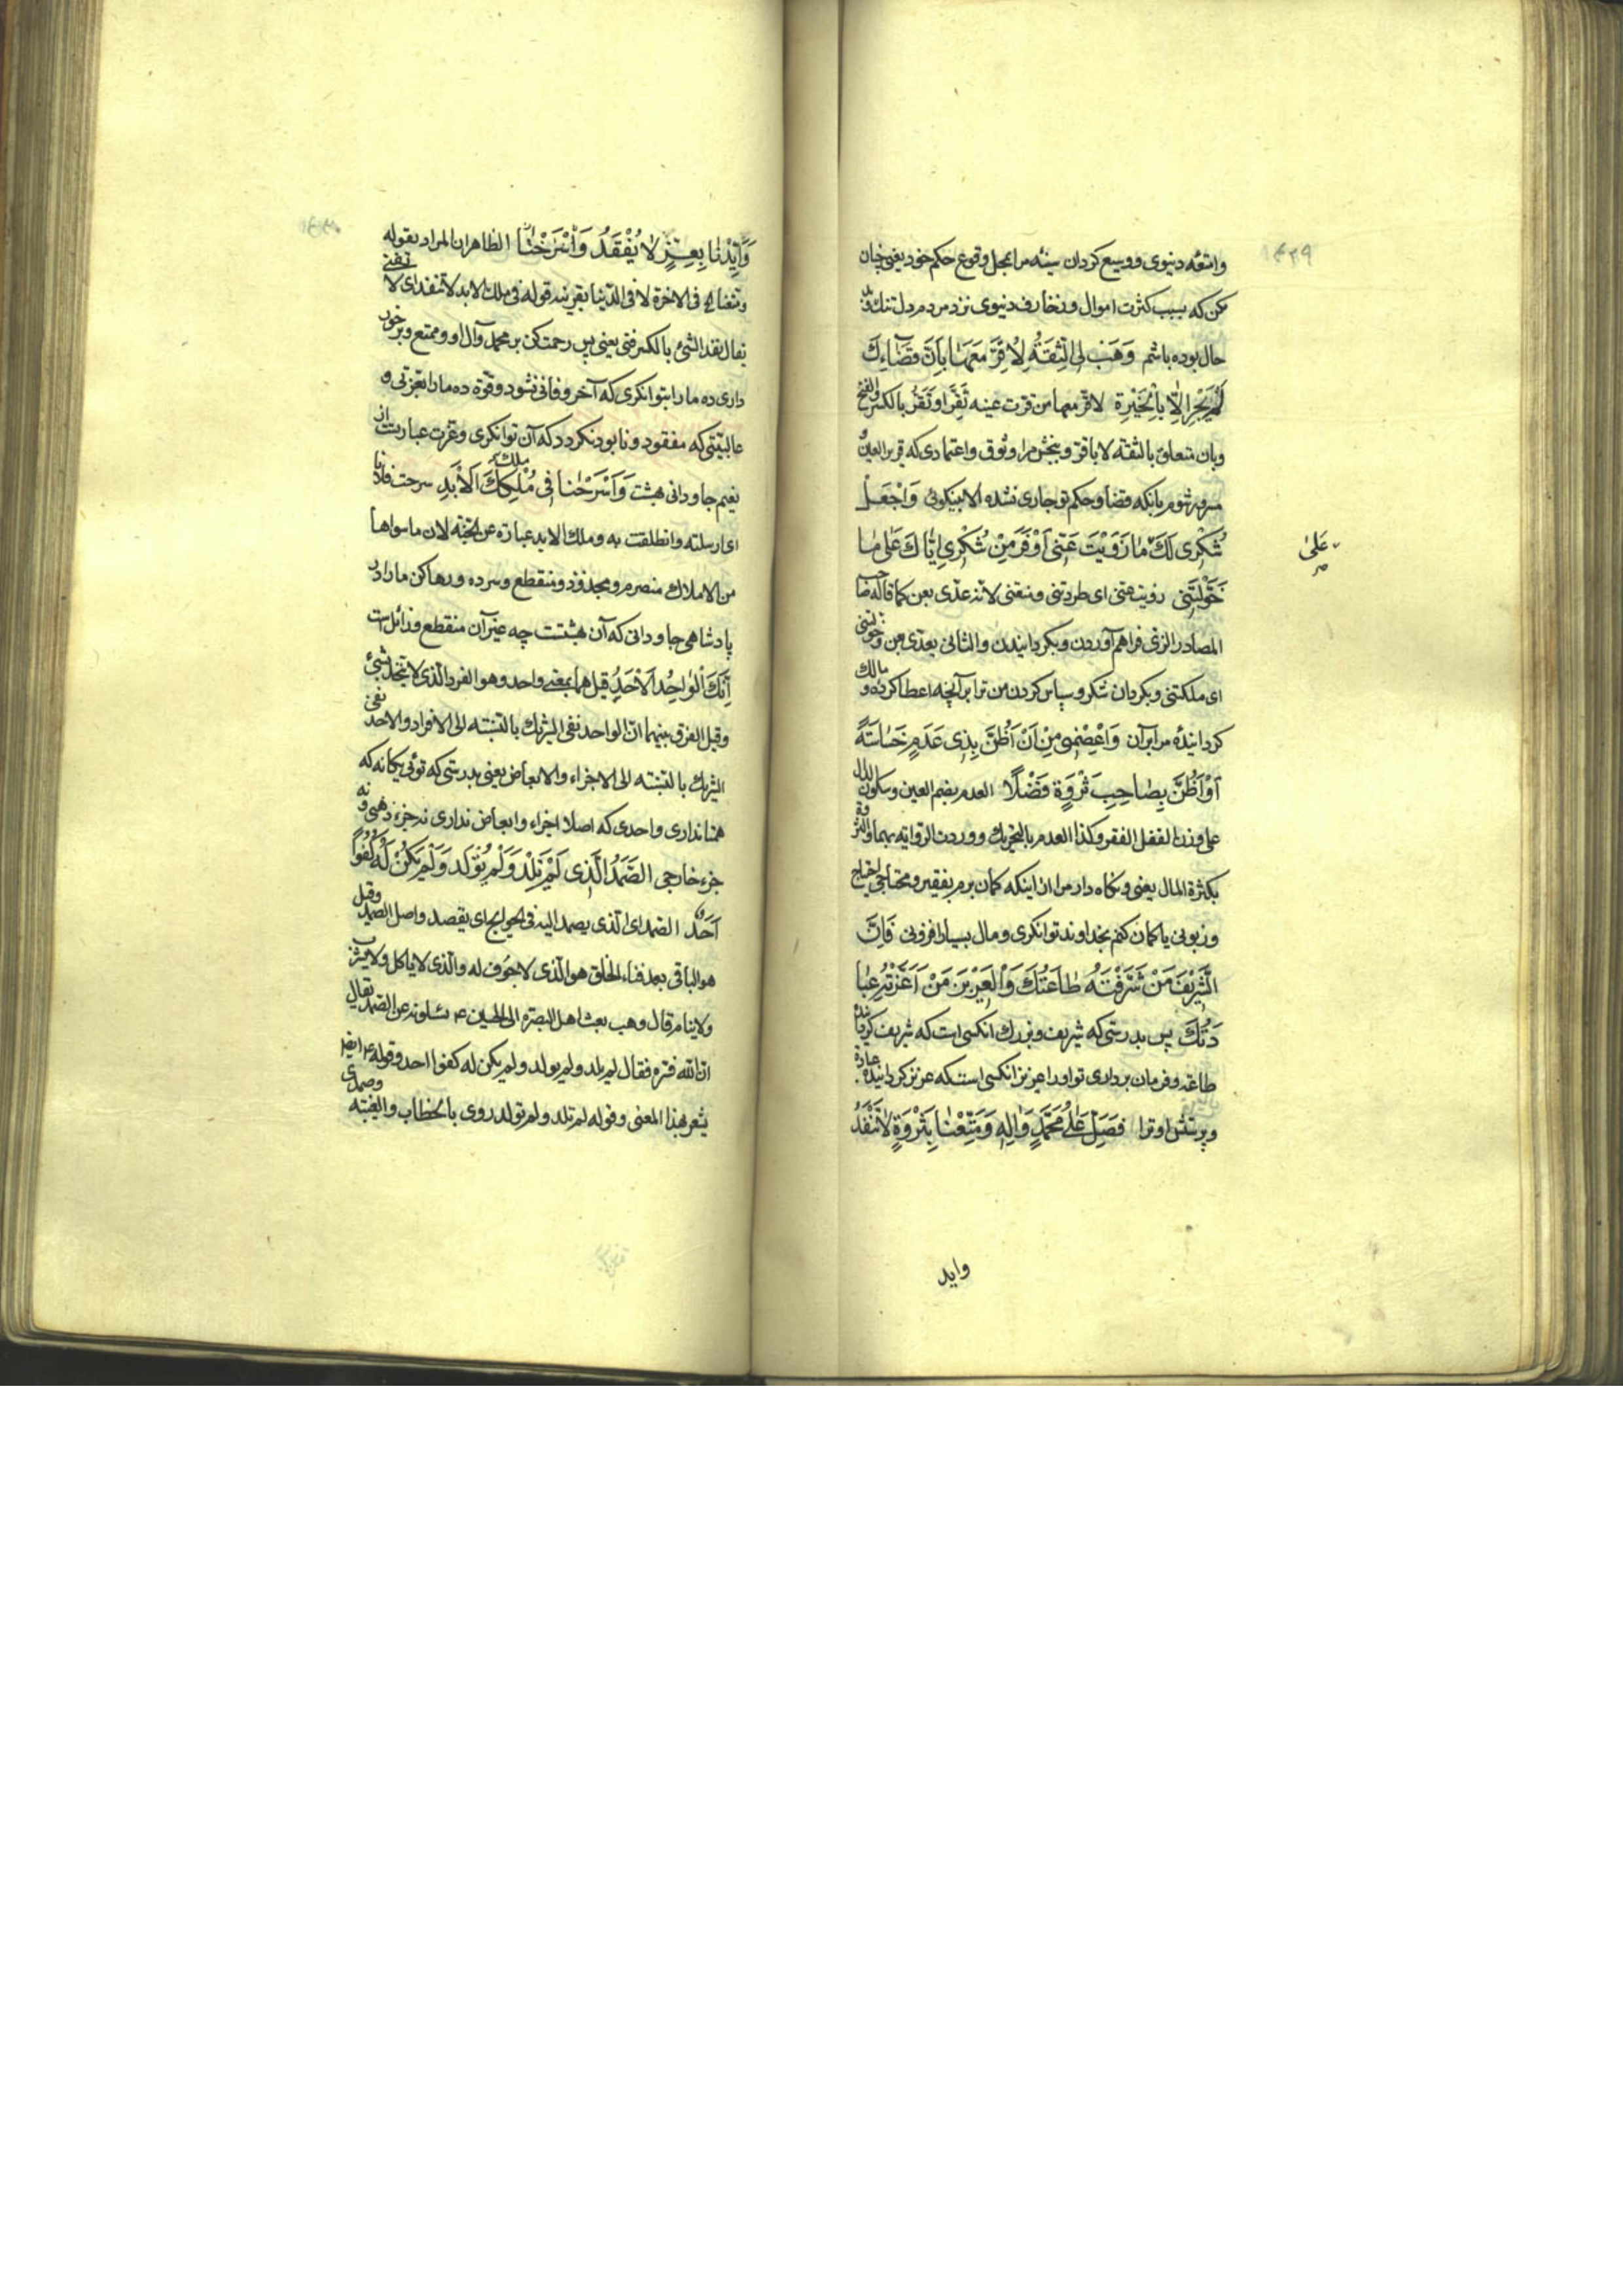 ۱۴۲۹
وامتعه دنیوی ووسیع کردان سینه مرا بمحل وقوع حکم خود یعنی چنان
مکن که بسبب کثرت اموال وزخارف دنیوی نزد مردم دل تنک و
حال بوده باشم وَهَبْ لِیَ الثِّقَةَ لِاُقِرَّ مَعَهٰا بِاَنَّ قَضٰاءَكَ
لَمْ یَجْرِ اِلّٰا بِالْخَیْرَةِ لاقر معها من قرت عینه تَقِرّ او تَقَرّ بالکسر والفتح
وبان متعلق بالثقة لا باقر و ببخش مرا وثوق واعتمادی که قریر العین و
مسرور شوم بانکه قضا وحکم تو جاری نشده الا بنیکوئی وَاجْعَلْ
شُكْرِی لَكَ مٰا زَوَیْتَ عَنّی اَوْفَرَ مِنْ شُكْرِی اِیّٰاكَ عَلٰی مٰا
عَلیٰ
خَوَّلْتَنی زویته عنی ای طردتنی ومنعتنی لانه عدّی بعن کما قاله صاحب
المصادر الزی فراهم آوردن وبکردانیدن والثانی یعدّی بعن وخولتنی
ای ملکتنی وبکردان شکر وسپاس کردن من ترا بر آنچه اعطا کرده و مالك
کرداننده مرا بر آن وَاعْصِمْنی مِنْ اَنْ اَظُنَّ بِذی عَدَمٍ خَسٰاسَةً
اَوْ اَظُنَّ بِصٰاحِبِ ثَرْوَةٍ فَضْلًا العدم بضم العین وسکون الدال
علی وزن لقفل الفقر وکذا العدم بالتحریك ووردت الروایة بهما والثروة
بکثرة المال یعنی ونکاه دار مرا از اینکه کمان برم بفقیر ومحتاجی احتیاج
وزبونی یا کمان کنم بخداوند توانکری ومال بسیار افزونی فَاِنَّ
الشَّریفَ مَنْ شَرَّفَتْهُ طٰاعَتُكَ وَالْعَزیزَ مَنْ اَعَزَّتْهُ عِبٰا
دَتُكَ پس بدرستی که شریف وبزرك انکسی است که شریف کرداننده
طاعت وفرمان برداری تو اورا عزیز انکسی استکه عزیز کرداننده عبادة
وپرستش او ترا فَصَلِّ عَلٰی مُحَمَّدٍ وَآلِهِ وَمَتِّعْنٰا بِثَرْوَةٍ لٰا تَنْفَدُ
واید
وَاَیِّدْنٰا بِعِزٍّ لٰا یُفْقَدُ وَاَسْرَحْنٰا الظاهر ان المراد بقوله
ومتعنا الخ فی الاخرة لا فی الدنیا بقرینه قوله فی ملك الابد لا تنفد ای لا تفنی
یقال نفد الشئ بالکسر فنی یعنی پس رحمت کن بر محمد وآل او وممتع وبرخور
داری ده ما را بتوانکری که آخر وفانی نشود وقوة ده ما را بعزتی و
عالبیتی که مفقود ونابود نکردد که آن توانکری وعزت عبارتست از
نعیم جاودانی بهشت وَاَسْرَحْنٰا فی مُلْكِكَ الْاَبَدِ سرحت فلانا
ملك
ای ارسلته وانطلقت به وملك الابد عبارة عن الجنة لان ماسواها
من الاملاك منصرم ومجذوذ ومنقطع وسرده ورها کن ما را در
پادشاهی جاودانی که آن بهشتست چه غیر آن منقطع وزائل است
اِنَّكَ الْوٰاحِدُ الْاَحَدُ قیل هما بمعنی واحد وهو الفرد الذی لا یتحد بشئ
وقیل الفرق بینهما انّ الواحد نفی الشریك بالنسبة الی الافراد والاحد نفی
الشریك بالنسبة الی الاجزاء والابعاض یعنی بدرستی که توئی یکانه که
همتا نداری واحدی که اصلا اجزاء وابعاض نداری نه جزء ذهنی و نه
جزء خارجی الصَّمَدُ الَّذی لَمْ تَلِدْ وَلَمْ تُولَدْ وَلَمْ یَكُنْ لَهُ كُفُواً
اَحَدٌ الصمد ای الذی یصمد الیه فی الحوایج ای یقصد واصل الصمد وقیل
هو الباقی بعد فناء الخلق هو الذی لا جوف له والذی لا یاکل ولا یشرب
ولا ینام قال وهب بعث اهل البصرة الی الحسین ع یسئلونه عن الصمد فقال
ان الله فسّره فقال لم یلد ولم یولد ولم یکن له کفوا احد وقوله ع ایضا
یشعر بهذا المعنی وقوله لم تلد ولم تولد روی بالخطاب والغیبة